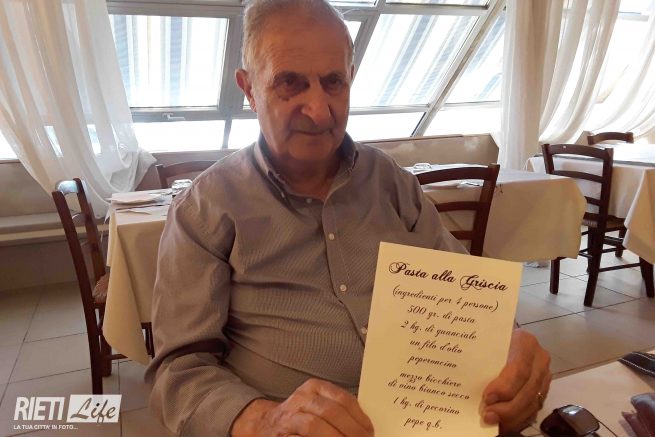 Pasta alla Griscia
(ingredienti per 4 persone)
500 gr. di pasta
2 hg. di guanciale
un filo d'olio
peperoncino
mezzo bicchiere
di vino bianco secco
1 hg. di pecorino
pepe q.b.
RIETI Life
LA TUA CITTA' IN FOTO...